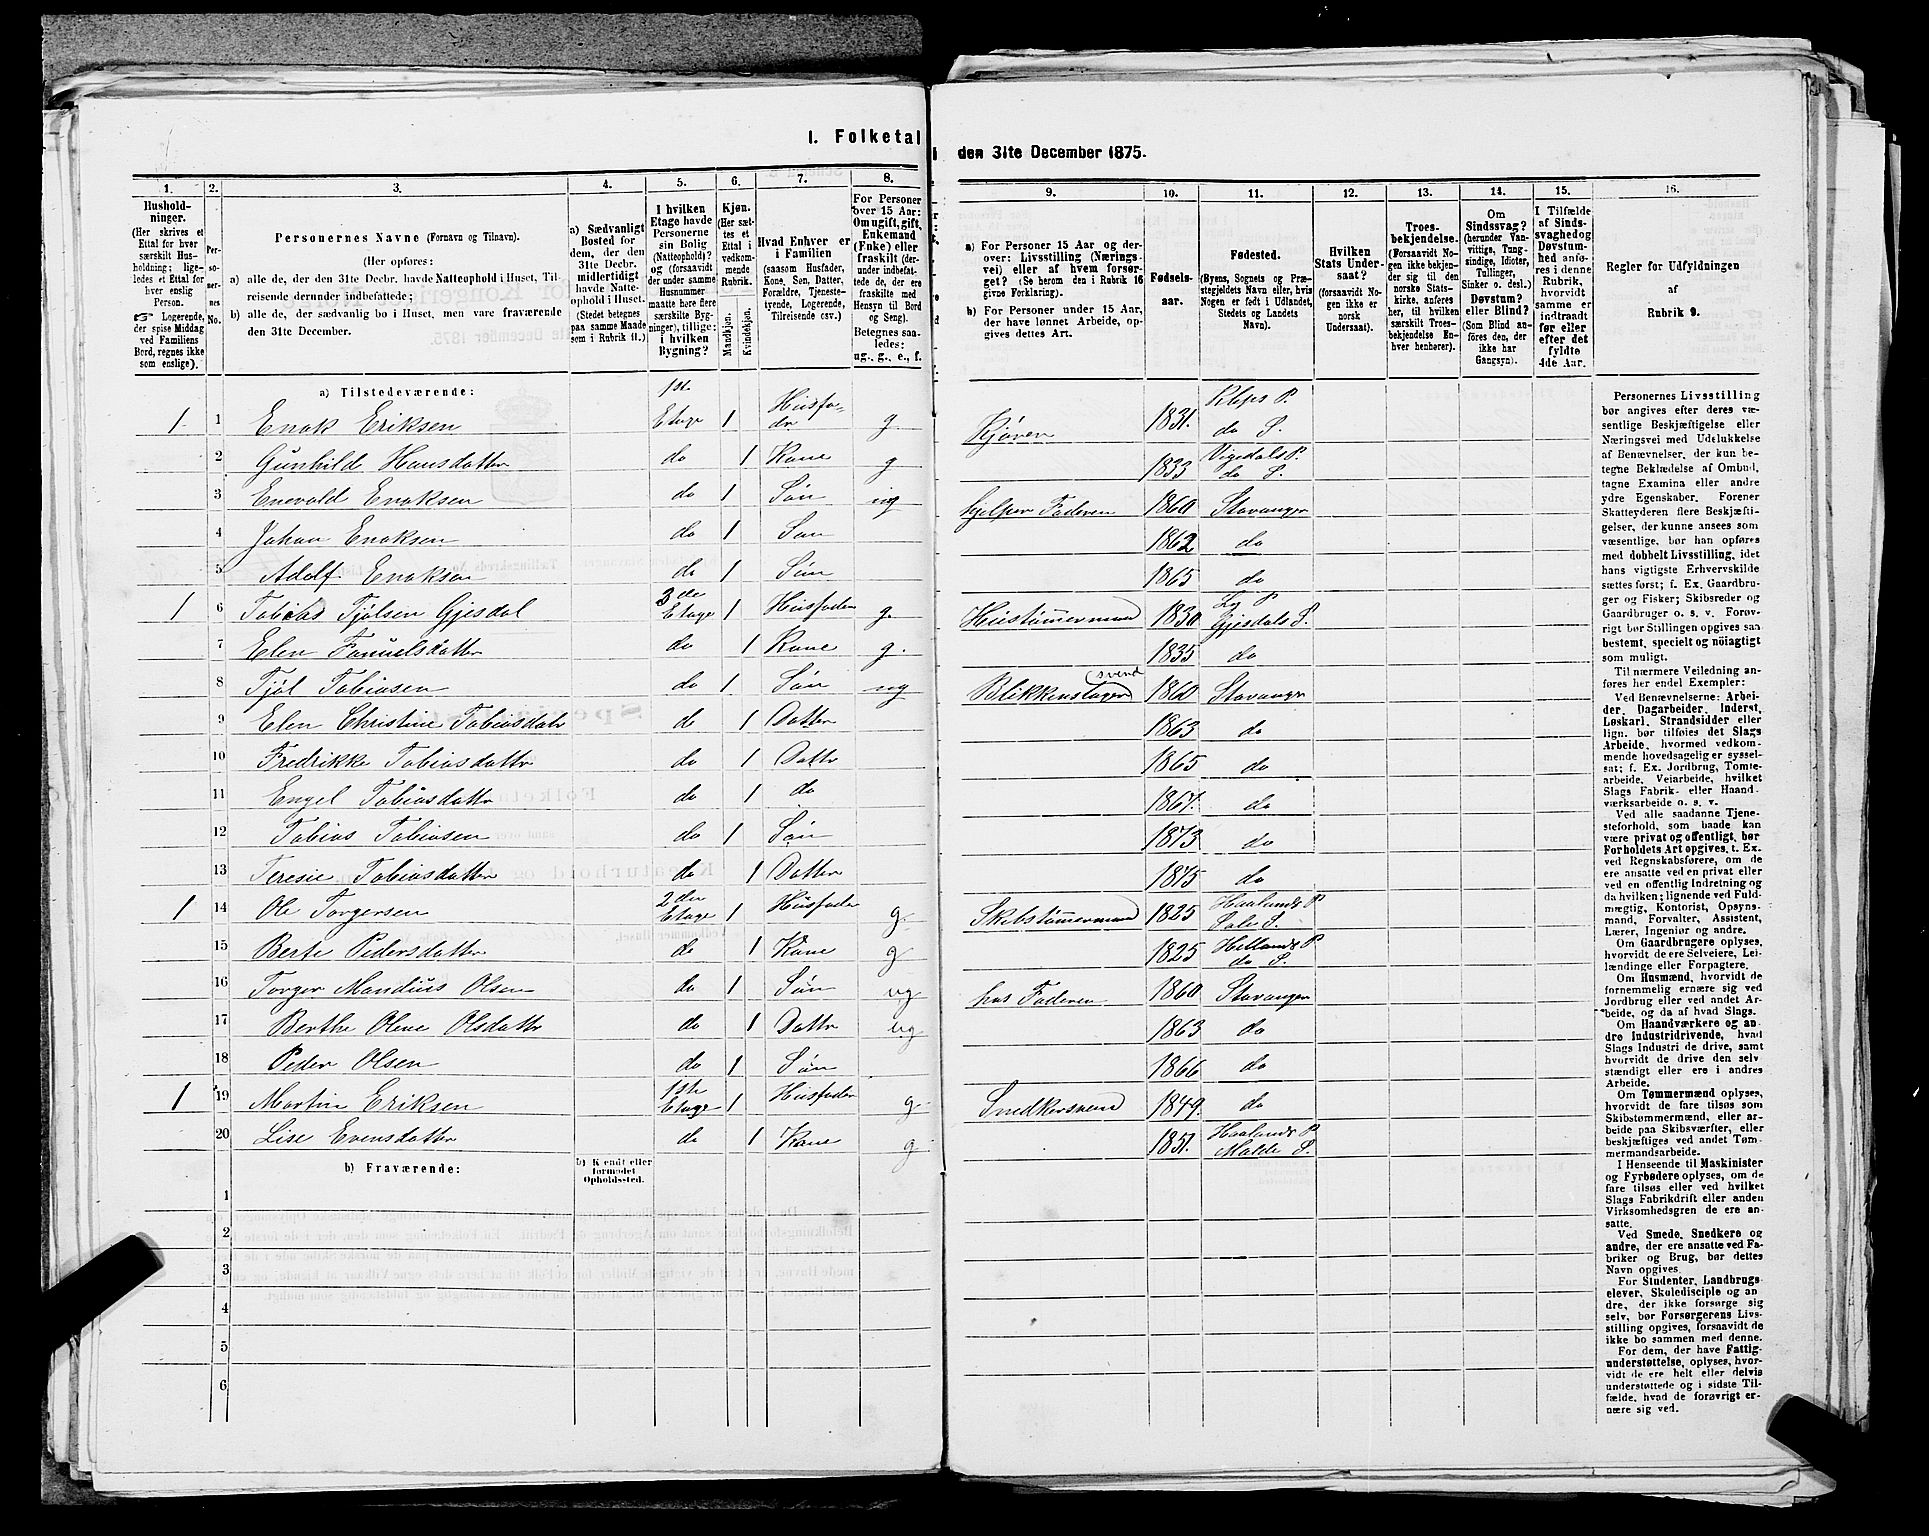 I. Folketal
den 31te December 1875.
1. 2. 3. 4. 5. 6. 7. 8. 9. 10. 11. 12. 13. 14. 15. 16.
Hushold-
ninger.
(Her skrives et
Ettal for hver
særskilt Hus-
holdning; lige-
ledes et Ettal for
hver enslig
Person.
☞ Logerende,
der spise Middag
ved Familiens
Bord, regnes ikke
som enslige).
Per-
so-
ner-
nes
No.
Personernes Navne (Fornavn og Tilnavn).
(Her opføres:
a) alle de, der den 31te Decbr. havde Natteophold i Huset, Til-
reisende derunder indbefattede;
b) alle de, der sædvanlig bo i Huset, men vare fraværende
den 31te December.
a) Sædvanligt
Bosted for
dem, der den
31te Decbr.
midlertidigt
havde Natte-
ophold i Huset.
(Stedet betegnes
paa samme Maade
som i Rubrik 11.)
I hvilken
Etage havde
Personerne
sin Bolig
(Natteophold)?
og (forsaavidt
der under samme
Husnummer
maatte høre flere
særskilte Byg-
ninger), tillige:
i hvilken
Bygning?
Kjøn.
(Her sæt-
tes et
Ettal i
vedkom-
mende
Rubrik.
Mandkjøn.
Kvindekjøn.
Hvad Enhver er
i Familien
(saasom Husfader,
Kone, Søn, Datter,
Forældre, Tjeneste-
tyende, Logerende,
Tilreisende osv.)
For Personer
over 15 Aar:
Om ugift, gift,
Enkemand
(Enke) eller
fraskilt (der-
under indbefat-
tede de, der ere
fraskilte med
Hensyn til Bord
og Seng).
Betegnes saa-
ledes:
ug., g., e., f.
a) For Personer 15 Aar og der-
over: Livsstilling (Nærings-
vei) eller af hvem forsør-
get? (Se herom den i Rubrik 16
givne Forklaring).
b) For Personer under 15 Aar,
der have lønnet Arbeide, op-
gives dettes Art.
Fødsels-
aar.
Fødested.
(Byens, Sognets og Præ-
stegjeldets Navn eller, hvis
Nogen er født i Udlandet,
Stedets og Landets
Navn).
Hvilken
Stats Under-
saat?
(forsaavidt No-
gen ikke er
norsk
Undersaat).
Troes-
bekjendelse.
(Forsaavidt No-
gen ikke bekjen-
der sig til den
norske Stats-
kirke, anføres
her, til hvilken
særskilt Troes-
bekjendelse En-
hver henhører).
Om
Sindssvag?
(herunder Van-
vittige, Tung-
sindige, Idioter,
Tullinger,
Sinker o. desl.)
Døvstum?
eller Blind?
(Som Blind an-
føres den, der
ikke har
Gangsyn).
I Tilfælde
af Sinds-
svaghed og
Døvstum-
hed anfø-
res i denne
Rubrik,
hvorvidt
samme er
indtraadt
før eller
efter det
fyldte
4de Aar.
Regler for Udfyldningen
af
Rubrik 9.
a) Tilstedeværende:
1 1 Enok Eriksen 1ste Etage 1 Husfader g. 1831. Kleps P. do S.
2 Gunhild Hansdatter do 1 Kone g 1833 Vigedals P. do S.
3 Enevald Enoksen do 1 Søn ug hjelper Faderen 1860 Stavanger
4 Johan Enoksen do 1 Søn 1862 do
5 Adolf Enoksen do 1 Søn 1865 do
1 6 Tobias Tjølsen Gjesdal 3de Etage 1 Husfader g. Hustømmermand 1830 Ly P Gjesdals S.
7 Elen Fanuelsdatter do 1 Kone g. 1835 do
8 Tjøl Tobiasen do 1 Søn ug Blikkenslager svend 1860 Stavanger
9 Elen Christine Tobiasdatr do 1 Datter 1863 do
10 Fredrikke Tobiasdattr do 1 Dattr 1865 do
11 Engel Tobiasdattr do 1 do 1867. do
12 Tobias Tobiasen do 1 Søn 1873 do
13 Teresie Tobiasdatter do 1 Datter 1875 do
1 14 Ole Torgersen 2den Etage 1 Husfader g. Skibstømmermand 1825 Haalands P Sole S.
15 Berte Pedersdatter do 1 Kone g 1825 Hetlands P do S.
16 Torger Mandius Olsen do 1 Søn ug hos Faderen 1860 Stavanger
17 Berthe Olene Olsdattr do 1 Dattr ug 1863 do
18 Peder Olsen do 1 Søn 1866 do
1 19 Martin Eriksen 1ste Etage 1 Husfader g. Snedkersvend 1849. do
20 Lise Evensdatter do 1 Kone g 1851. Haalands P Malde S.
b) Fraværende:
b) Kjendt eller
formodet
Opholdssted.
1
2
3
4
5
6
Personernes Livsstilling
bør angives efter deres væ-
sentlige Beskjæftigelse eller
Næringsvei med Udelukkelse
af Benævnelser, der kun be-
tegne Beklædelse af Ombud,
tagne Examina eller andre
ydre Egenskaber. Forener
Skatteyderen flere Beskjæfti-
gelser, der kunne ansees som
væsentlige, bør han opføres
med dobbelt Livsstilling, idet
hans vigtigste Erhvervskilde
sættes først; f. Ex. Gaardbru-
ger og Fisker; Skibsreder og
Gaardbruger o. s. v. Forøv-
rigt bør Stillingen opgives saa
bestemt, specielt og nöiagtigt
som muligt.
Til nærmere Veiledning an-
føres her endel Exempler:
Ved Benævnelserne: Arbei-
der, Dagarbeider, Inderst,
Løskarl, Strandsidder eller
lign. bør tilføies det Slags
Arbeide, hvormed vedkom-
mende hovedsagelig er syssel-
sat; f. Ex. Jordbrug, Tomte-
arbeide, Veiarbeide, hvilket
Slags Fabrik- eller Haand-
værksarbeide o. s. v.
Ved alle saadanne Tjene-
steforhold, som baade kan
være privat og offentligt, bør
Forholdets Art opgives, t. Ex.
ved Regnskabsførere, om de
ere ansatte ved en privat eller
ved en offentlig Indretning og
da hvilken; lignende ved Fuld-
mægtig, Kontorist, Opsyns-
mand, Forvalter, Assistent,
Lærer, Ingeniør og andre.
Om Gaardbrugere oplyses,
hvorvidt de ere Selveiere, Lei-
lændinge eller Forpagtere.
Om Husmænd, hvorvidt de
fornemmelig ernære sig ved
Jordbrug eller ved andet Ar-
beide, og da af hvad Slags.
Om Haandværkere og an-
dre Industridrivende, hvad
Slags Industri de drive, samt
hvorvidt de drive den selv-
stændigt eller ere i andres
Arbeide.
Om Tømmermænd oplyses,
hvorvidt de fare tilsøs som
Skibstømmermænd, eller ar-
beide paa Skibsværfter, eller
beskjæftiges ved andet Tøm-
mermandsarbeide.
I Henseende til Maskinister
og Fyrbødere oplyses, om de
fare tilsøs eller ved hvilket
Slags Fabrikdrift eller anden
Virksomhedsgren de ere an-
satte.
Ved Smede, Snedkere og
andre, der ere ansatte ved Fa-
briker og Brug, bør dettes
Navn opgives.
For Studenter, Landbrugs-
elever, Skoledisciple og an-
dre, der ikke forsørge sig
selv, bør Forsørgerens Livs-
stilling opgives, forsaavidt de
ikke bo sammen med denne.
For dem, der have Fattig-
understøttelse, oplyses, hvor-
vidt de ere helt eller delvis
understøttede og i sidste Til-
fælde, hvad de forøvrigt er-
nære sig ved.